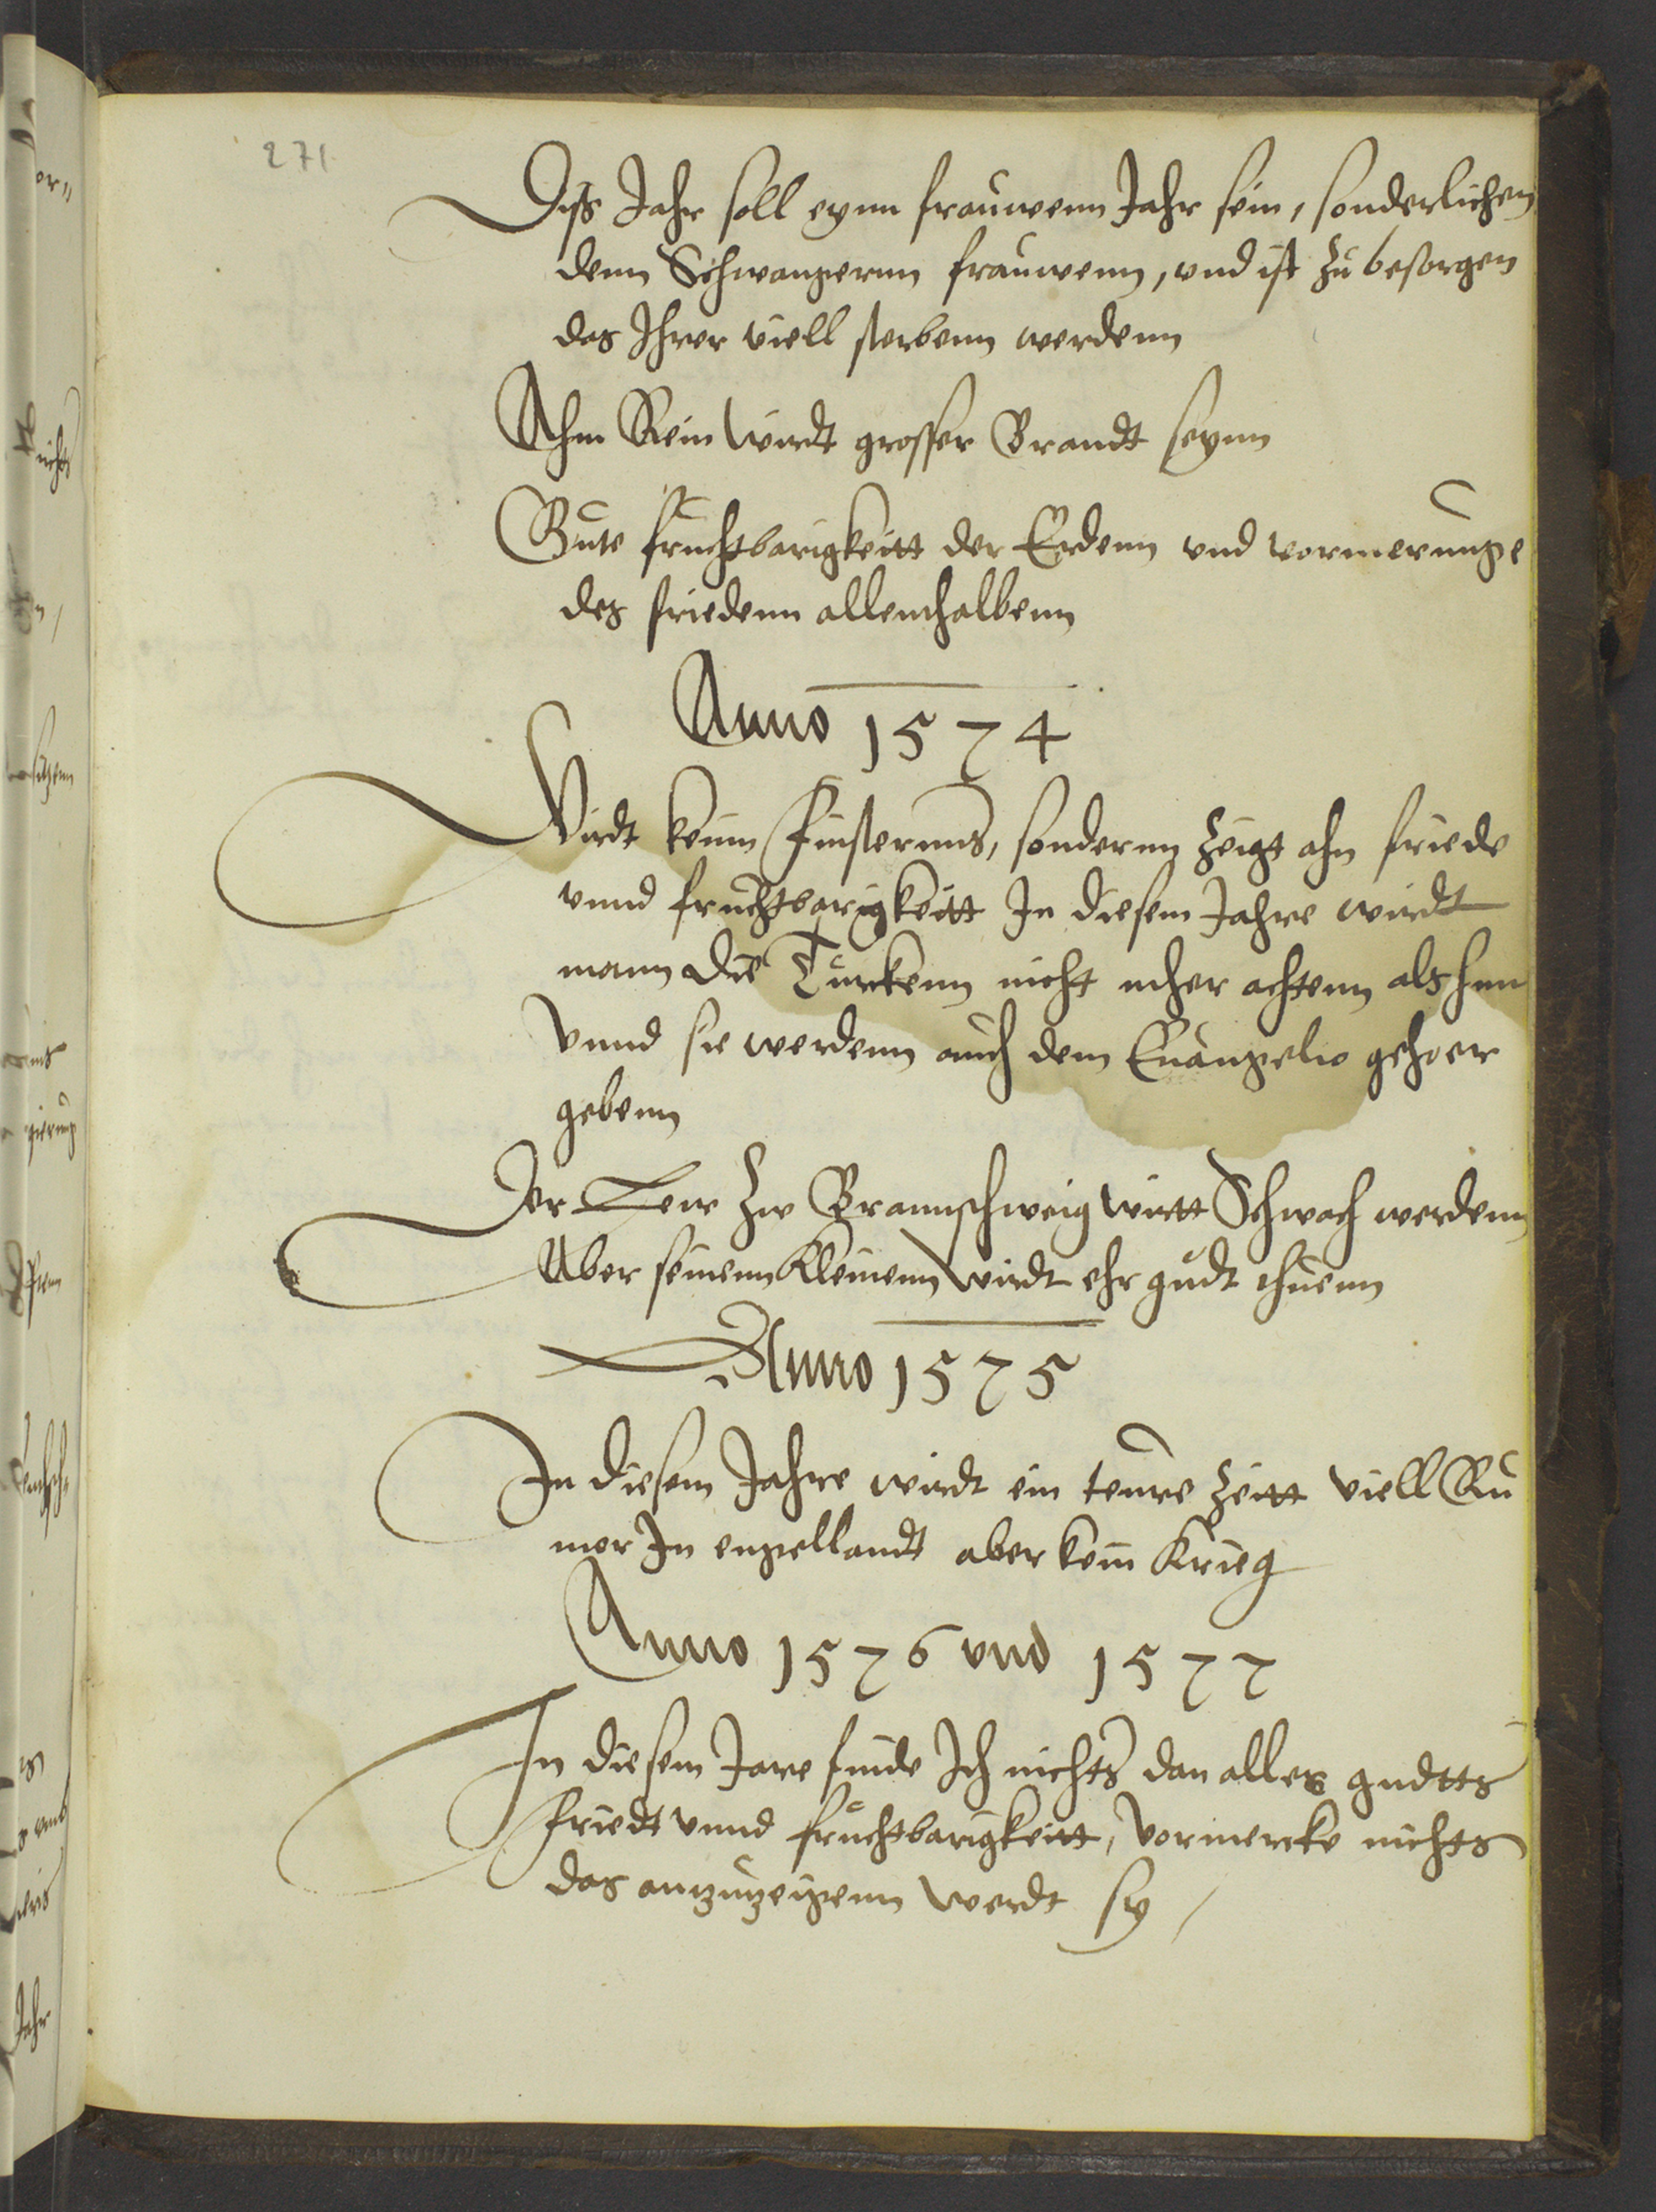 271
Diss Jahr soll eynn frauwenn Jahr sein, sonderlichen
denn Schwangernn frauwenn, vnd ist zu besorgen
das Ihrer viell sterbenn werdenn
Ahm Rein wirdt grosser Brandt seynn
Gute fruchtbarigkeitt der Erdenn vnd vormerunge
des friedenn allenthalbenn
Anno 1574
Wirdt keinn Finsternus, sondernn zeigt ahn friede
vnnd fruchtbarigkeitt In diesem Jahre wirdt
mann die Turckenn nicht acher achtenn als
Vnnd sie werdenn auch dem Euangelio gehoer
gebenn
Der Lew zw Braunschweig wirtt Schwach werdenn
Aber seinenn Kleinenn wirdt ehr gudt thuenn
Anno 1575
In diesem Jahre wirdt ein teure zeitt viell Ru
mor In engellandt aber kein Krieg
Anno 1576 vnd 1577
In diesem Jare finde Ich nichts dan alles gudtts
friedt vnnd fruchtbarigkeitt, vormercke nichts
das antzutzeigenn werdt sey /